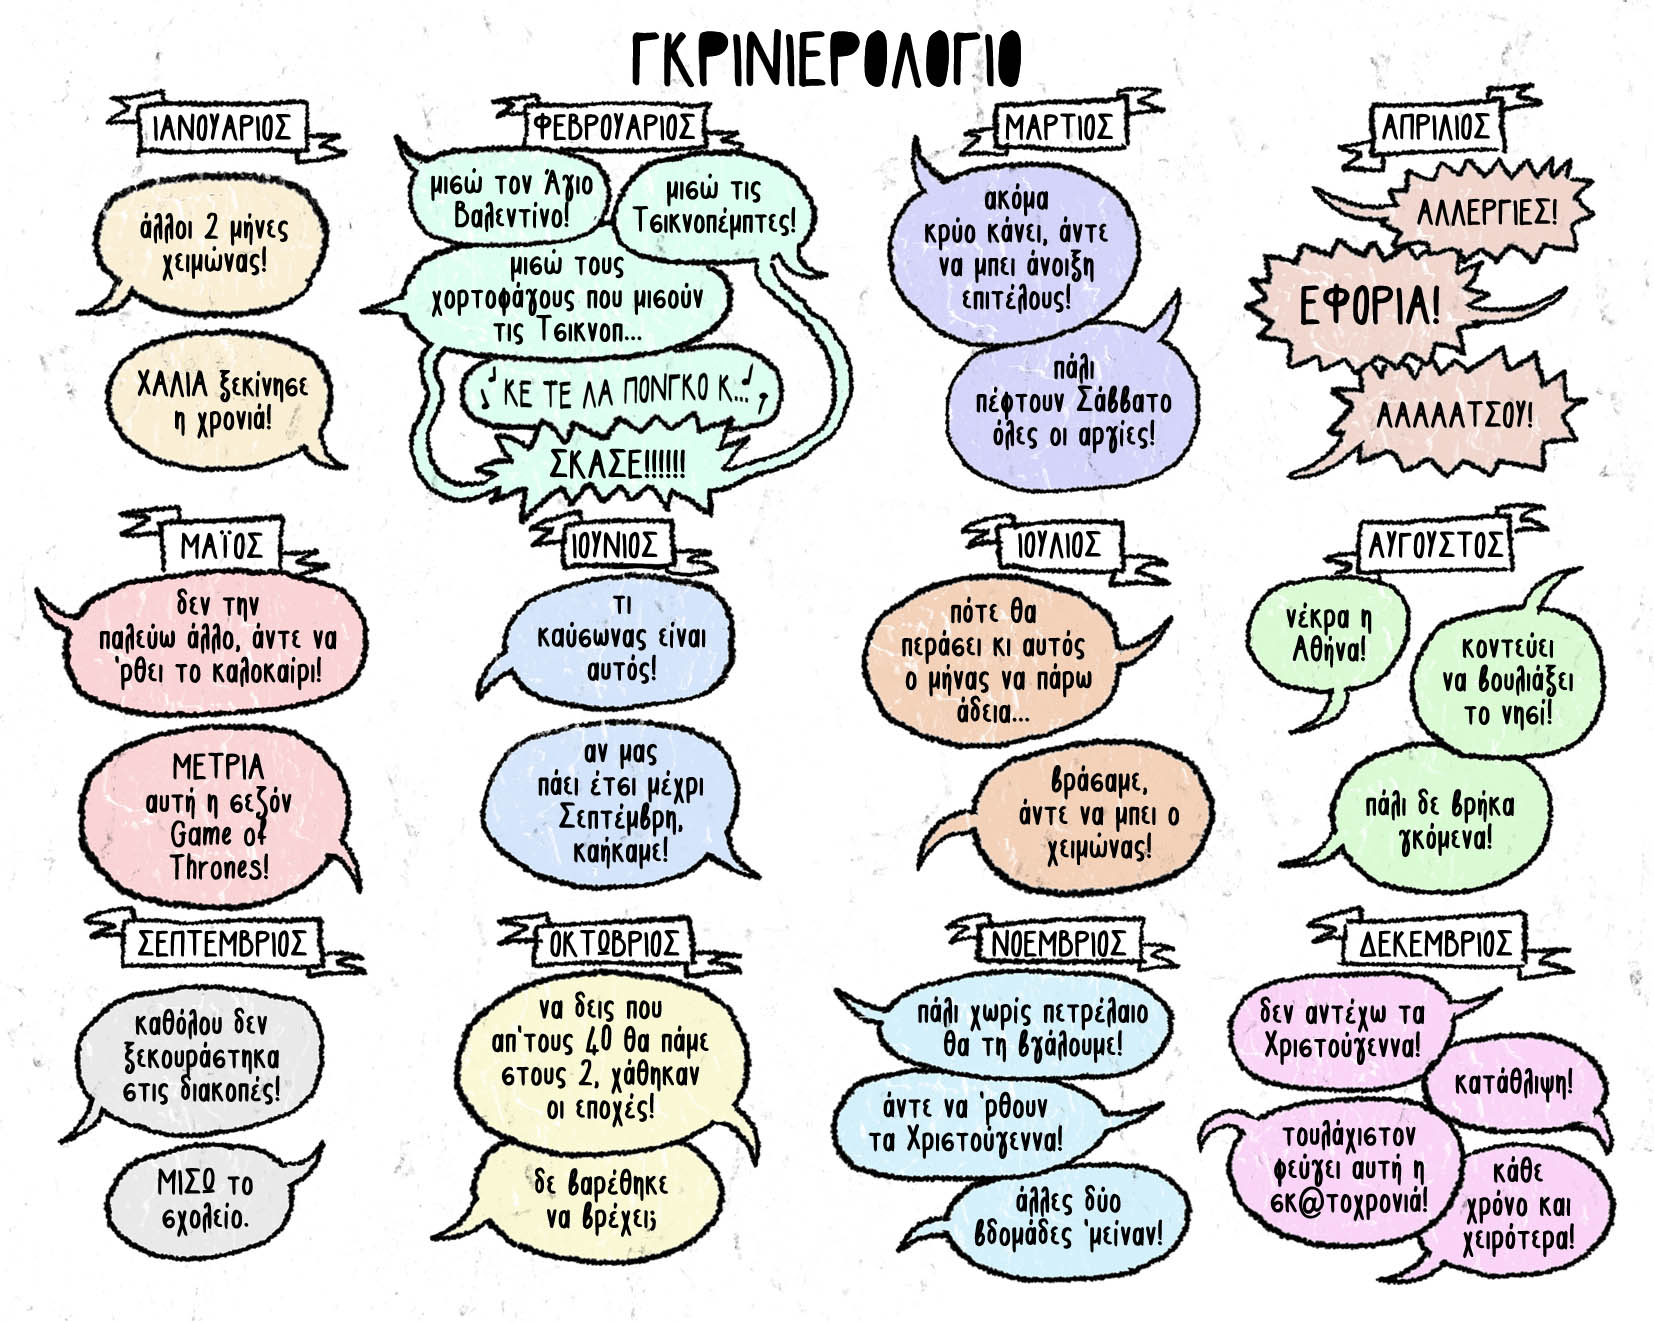 ΓΚΡΙΝΙΕΡΟΛΟΓΙΟ
ΙΑΝΟΥΑΡΙΟΣ
άλλοι 2 μήνες
χειμώνας!
ΧΑΛΙΑ ξεκίνησε
η χρονιά!
ΦΕΒΡΟΥΑΡΙΟΣ
μισώ τον Άγιο
Βαλεντίνο!
μισώ τις
Τσικνοπέμπτες!
μισώ τους
χορτοφάγους που μισούν
τις Τσικνοπ...
ΚΕ ΤΕ ΛΑ ΠΟΝΓΚΟ Κ...
ΣΚΑΣΕ!!!!!!
ΜΑΡΤΙΟΣ
ακόμα
κρύο κάνει, άντε
να μπει άνοιξη
επιτέλους!
πάλι
πέφτουν Σάββατο
όλες οι αργίες!
ΑΠΡΙΛΙΟΣ
ΑΛΛΕΡΓΙΕΣ!
ΕΦΟΡΙΑ!
ΑΑΑΑΑΤΣΟΥ!
ΜΑΪΟΣ
δεν την
παλεύω άλλο, άντε να
'ρθει το καλοκαίρι!
ΜΕΤΡΙΑ
αυτή η σεζόν
Game of
Thrones!
ΙΟΥΝΙΟΣ
τι
καύσωνας είναι
αυτός!
αν μας
πάει έτσι μέχρι
Σεπτέμβρη,
καήκαμε!
ΙΟΥΛΙΟΣ
πότε θα
περάσει κι αυτός
ο μήνας να πάρω
άδεια...
βράσαμε,
άντε να μπει ο
χειμώνας!
ΑΥΓΟΥΣΤΟΣ
νέκρα η
Αθήνα!
κοντεύει
να βουλιάξει
το νησί!
πάλι δε βρήκα
γκόμενα!
ΣΕΠΤΕΜΒΡΙΟΣ
καθόλου δεν
ξεκουράστηκα
στις διακοπές!
ΜΙΣΩ το
σχολείο.
ΟΚΤΩΒΡΙΟΣ
να δεις που
απ'τους 40 θα πάμε
στους 2, χάθηκαν
οι εποχές!
δε βαρέθηκε
να βρέχει;
ΝΟΕΜΒΡΙΟΣ
πάλι χωρίς πετρέλαιο
θα τη βγάλουμε!
άντε να 'ρθουν
τα Χριστούγεννα!
άλλες δύο
βδομάδες 'μείναν!
ΔΕΚΕΜΒΡΙΟΣ
δεν αντέχω τα
Χριστούγεννα!
κατάθλιψη!
τουλάχιστον
φεύγει αυτή η
σκ@τοχρονιά!
κάθε
χρόνο και
χειρότερα!